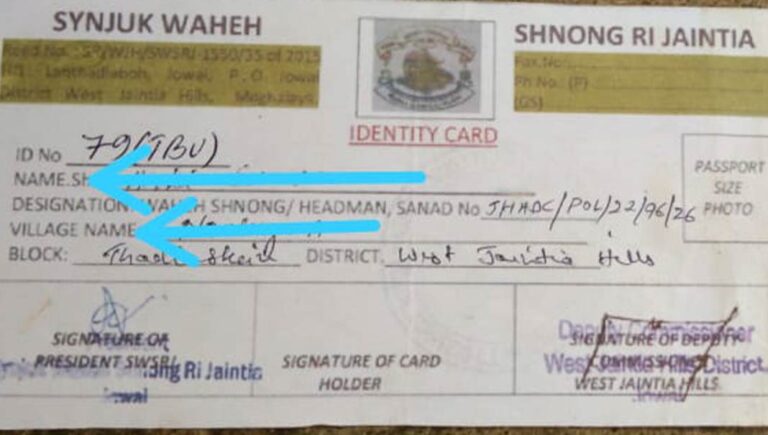 SYNJUK WAHEH
SHNONG RI JAINTIA
Regd No. : SR/WJH/SWSRJ-1550/35 of 2015
HQ: Ladthadlaboh, Jowai, P.O. Jowai
District West Jaintia Hills, Meghalaya
Fax.No:
Ph No. (P)
(GS)
IDENTITY CARD
ID No 79(TBU)
NAME.SH
DESIGNATION: WAHEH SHNONG/ HEADMAN, SANAD No JHADC/POL/22/96/26
VILLAGE NAME
BLOCK: Thadlaskein DISTRICT. West Jaintia Hills
PASSPORT
SIZE
PHOTO
SIGNATURE OF
PRESIDENT SWSRJ
Shnong Ri Jaintia
Jowai
SIGNATURE OF CARD
HOLDER
Deputy Commissioner
SIGNATURE OF DEPUTY
West Jaintia Hills District,
COMMISSIONER
WEST JAINTIA HILLS.
Jowai